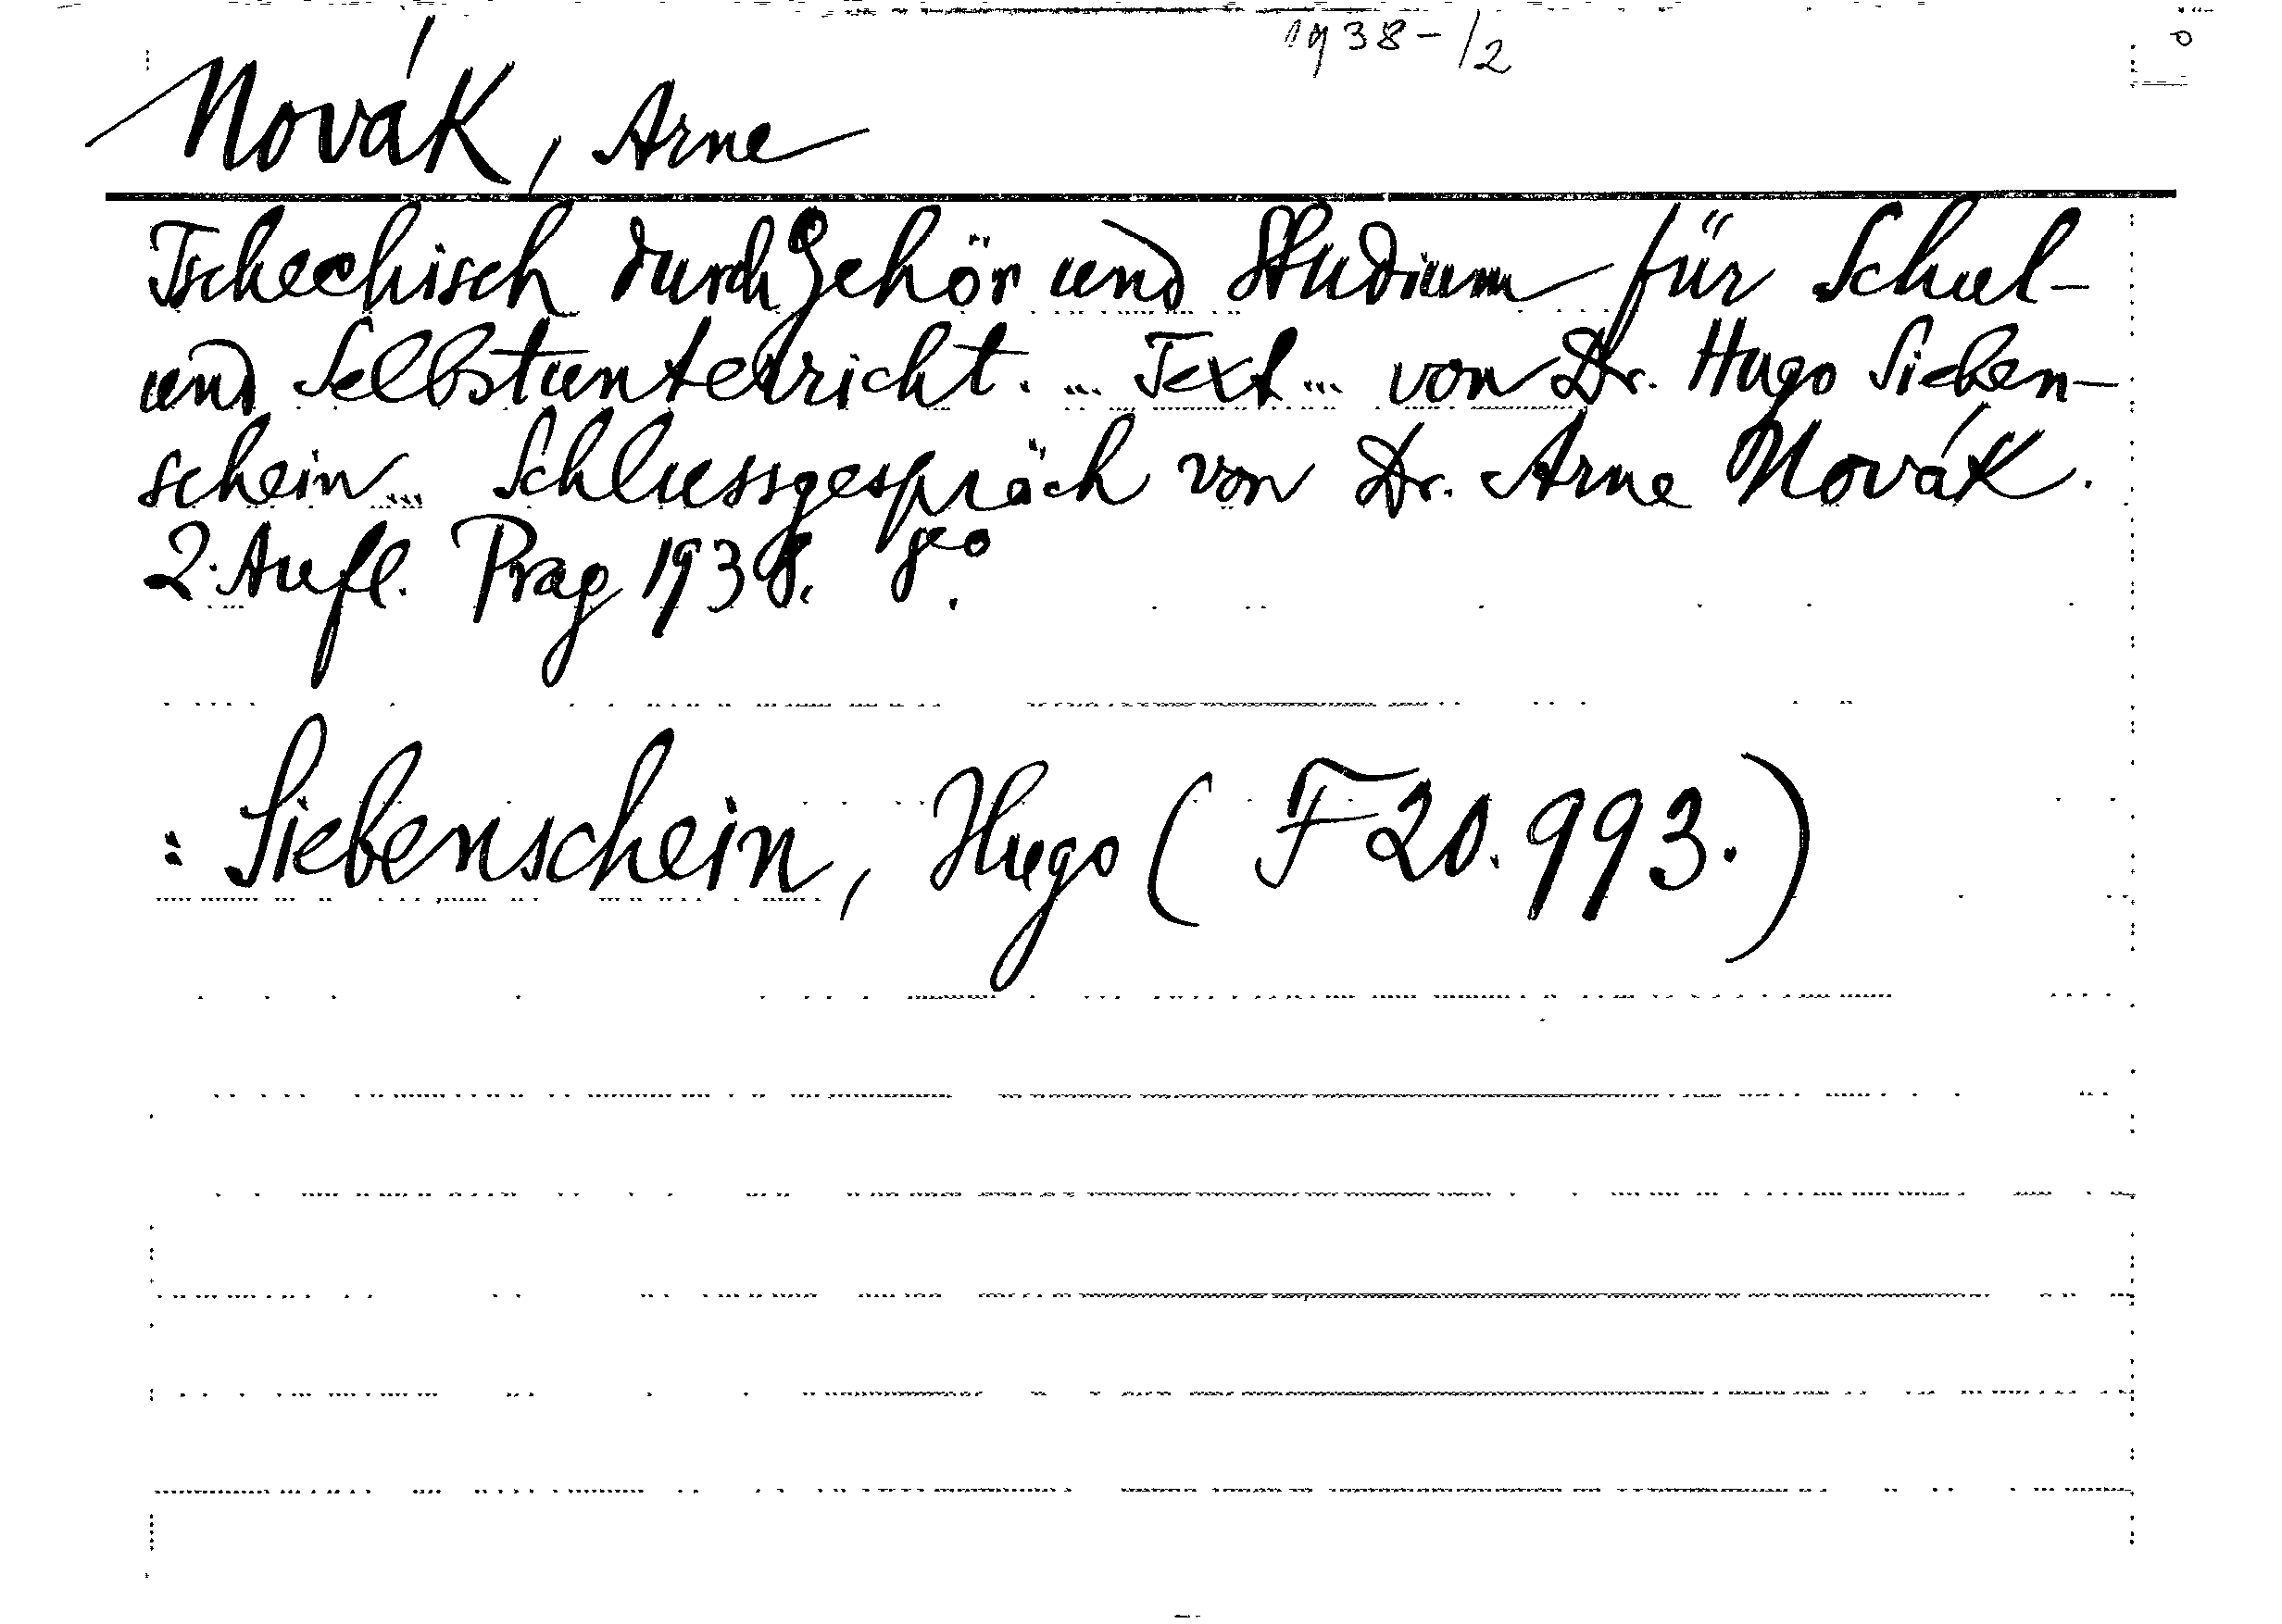 1938-/2
Novák, Arne
Tschechisch durch Gehör und Studium für Schul-
und Selbstunterricht. ... Text ... von Dr. Hugo Sieben-
schein ... Schlussgespräch von Dr. Arne Novák.
2. Aufl. Prag 1938. 8°.
: Siebenschein, Hugo (F 20.993.)